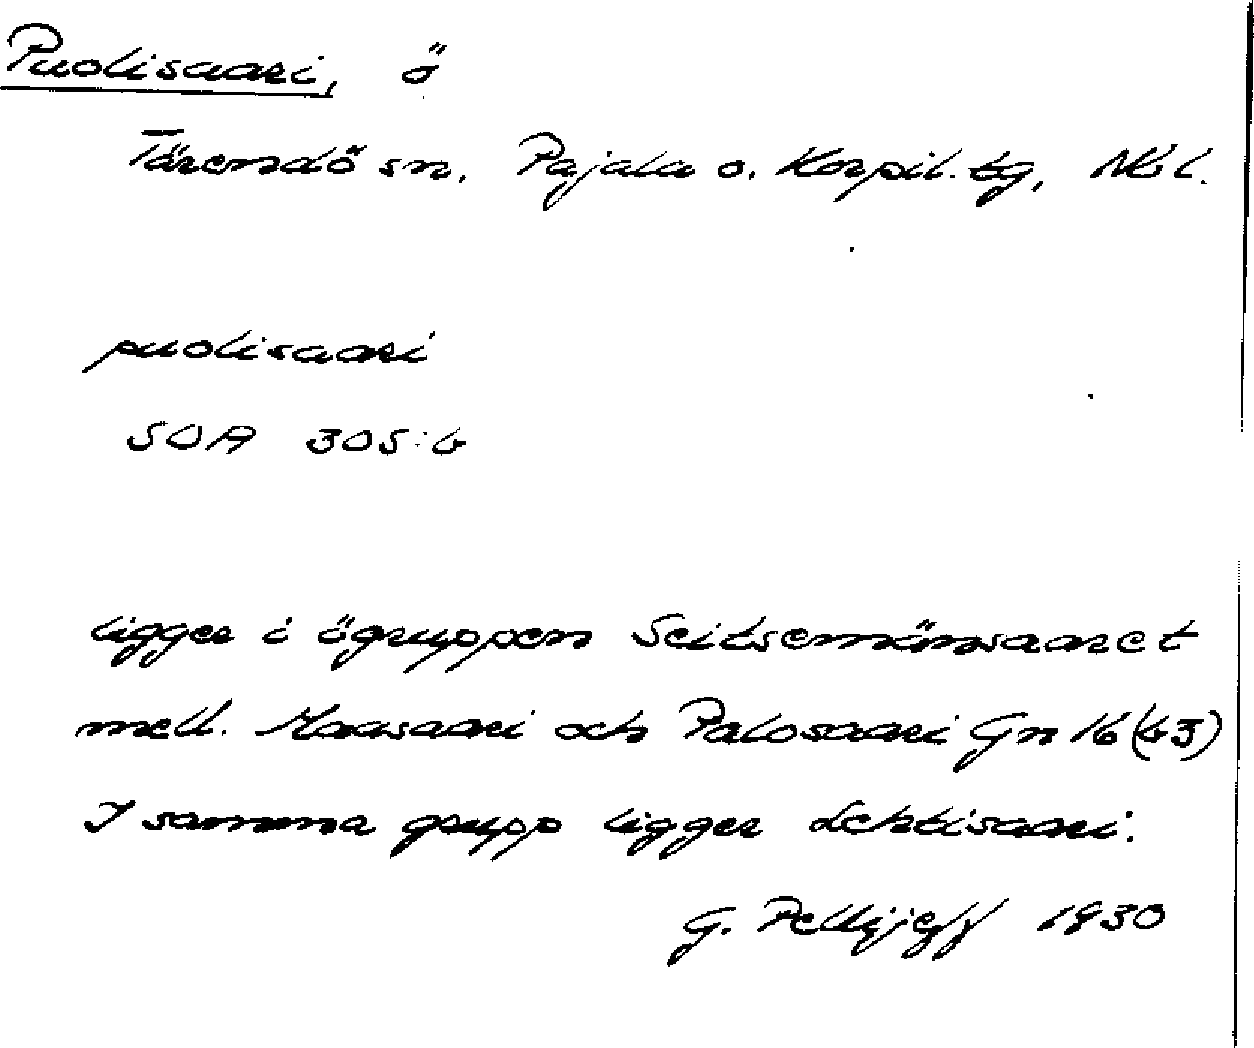 Puolisaari, ö
Tärendö sn, Pajala o. Korpil. tg, Nbl.
puolisaari
SOA 305:6
ligger i ögruppen Seitsemänsaaret
mell. Maasaari och Palosaari Gn 16 (43)
I samma grupp ligger Lehtisaari.
G. Pellijeff 1930